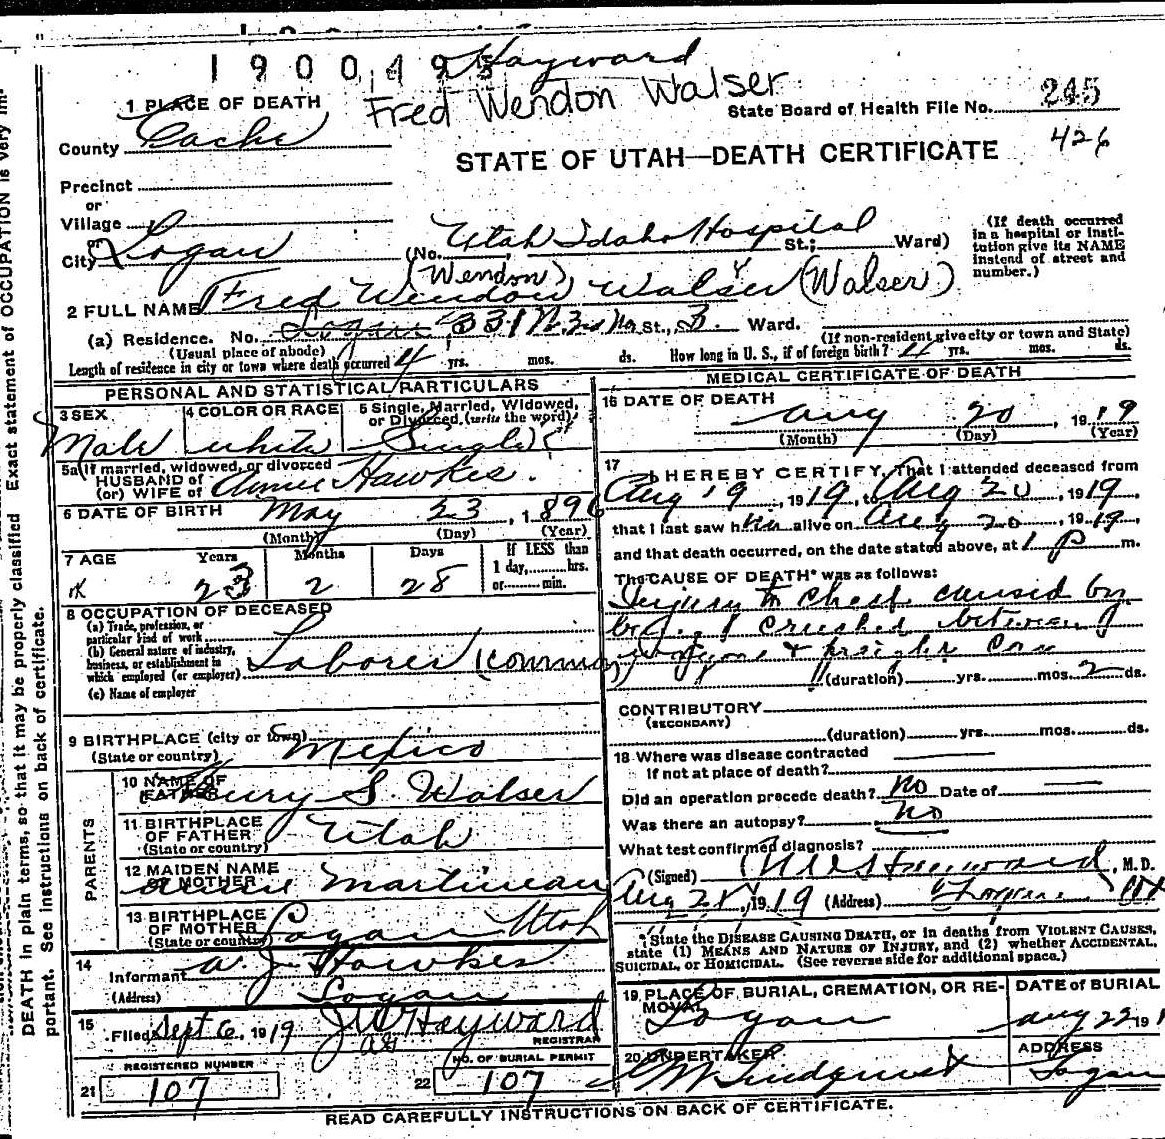 1900495
Hayward
Fred Wendon Walser
1 PLACE OF DEATH
State Board of Health File No. 245
County Cache
STATE OF UTAH—DEATH CERTIFICATE 426
Precinct
or
Village
or
City Logan (No. Utah Idaho Hospital St.; Ward)
(If death occurred in a hospital or institution give its NAME instead of street and number.)
(Wendon)
2 FULL NAME Fred Wendon Walser (Walser)
(a) Residence. No. Logan 331 N. 3rd No St., 3. Ward.
(Usual place of abode) (If non-resident give city or town and State)
Length of residence in city or town where death occurred 4 yrs. mos. ds. How long in U. S., if of foreign birth? 4 yrs. mos. ds.
PERSONAL AND STATISTICAL PARTICULARS
3 SEX Male
4 COLOR OR RACE white
5 Single, Married, Widowed, or Divorced, (write the word) Single
5a If married, widowed, or divorced
HUSBAND of
(or) WIFE of Annie Hawkes.
6 DATE OF BIRTH May 23, 1896
(Month) (Day) (Year)
7 AGE Years Months Days If LESS than
1 day, hrs.
23 2 28 or min.
8 OCCUPATION OF DECEASED
(a) Trade, profession, or
particular kind of work
(b) General nature of industry,
business, or establishment in
which employed (or employer) Laborer (common)
(c) Name of employer
9 BIRTHPLACE (city or town) Mexico
(State or country)
PARENTS
10 NAME OF
FATHER Henry S. Walser
11 BIRTHPLACE
OF FATHER Utah
(State or country)
12 MAIDEN NAME
OF MOTHER Martineau
13 BIRTHPLACE
OF MOTHER Logan Utah
(State or country)
14
Informant A. J. Hawkes
(Address) Logan
15
Filed Sept 6, 1919 J W Hayward
REGISTRAR
REGISTERED NUMBER
21 107
NO. OF BURIAL PERMIT
22 107
MEDICAL CERTIFICATE OF DEATH
16 DATE OF DEATH
Aug 20, 1919
(Month) (Day) (Year)
17 I HEREBY CERTIFY, That I attended deceased from
Aug 19, 1919, to Aug 20, 1919,
that I last saw him alive on Aug 20, 1919,
and that death occurred, on the date stated above, at 1 P m.
The CAUSE OF DEATH* was as follows:
Injury to chest caused by
being crushed between
wagon & freight car
(duration) yrs. mos. 2 ds.
CONTRIBUTORY
(SECONDARY)
(duration) yrs. mos. ds.
18 Where was disease contracted
if not at place of death?
Did an operation precede death? No Date of
Was there an autopsy? No
What test confirmed diagnosis?
(Signed) Hayward, M. D.
Aug 21, 1919 (Address) Logan Ut
*State the DISEASE CAUSING DEATH, or in deaths from VIOLENT CAUSES,
state (1) MEANS AND NATURE OF INJURY, and (2) whether ACCIDENTAL,
SUICIDAL, or HOMICIDAL. (See reverse side for additional space.)
19 PLACE OF BURIAL, CREMATION, OR RE-
MOVAL
Logan
DATE of BURIAL
Aug 22 191
20 UNDERTAKER
Lindquist
ADDRESS
Logan
READ CAREFULLY INSTRUCTIONS ON BACK OF CERTIFICATE.
DEATH in plain terms, so that it may be properly classified Exact statement of OCCUPATION is very im-
portant. See instructions on back of certificate.